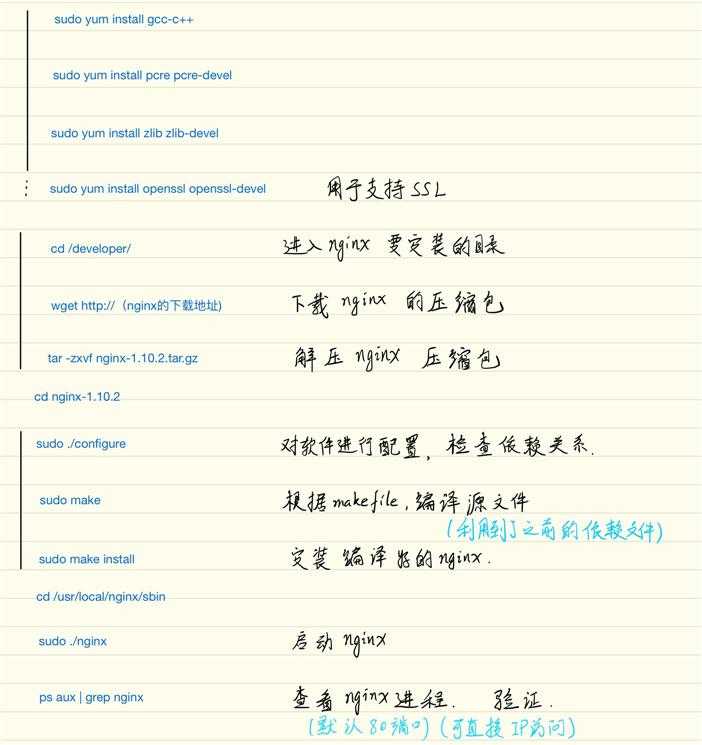 sudo yum install gcc-c++
sudo yum install pcre pcre-devel
sudo yum install zlib zlib-devel
sudo yum install openssl openssl-devel 用于支持SSL
cd /developer/ 进入nginx 要安装的目录
wget http://（nginx的下载地址) 下载 nginx 的压缩包
tar -zxvf nginx-1.10.2.tar.gz 解压 nginx 压缩包
cd nginx-1.10.2
sudo ./configure 对软件进行配置, 检查依赖关系.
sudo make 根据makefile,编译源文件
(利用到了之前的依赖文件)
sudo make install 安装 编译好的nginx.
cd /usr/local/nginx/sbin
sudo ./nginx 启动 nginx
ps aux | grep nginx 查看 nginx 进程. 验证.
(默认80端口) (可直接IP访问)